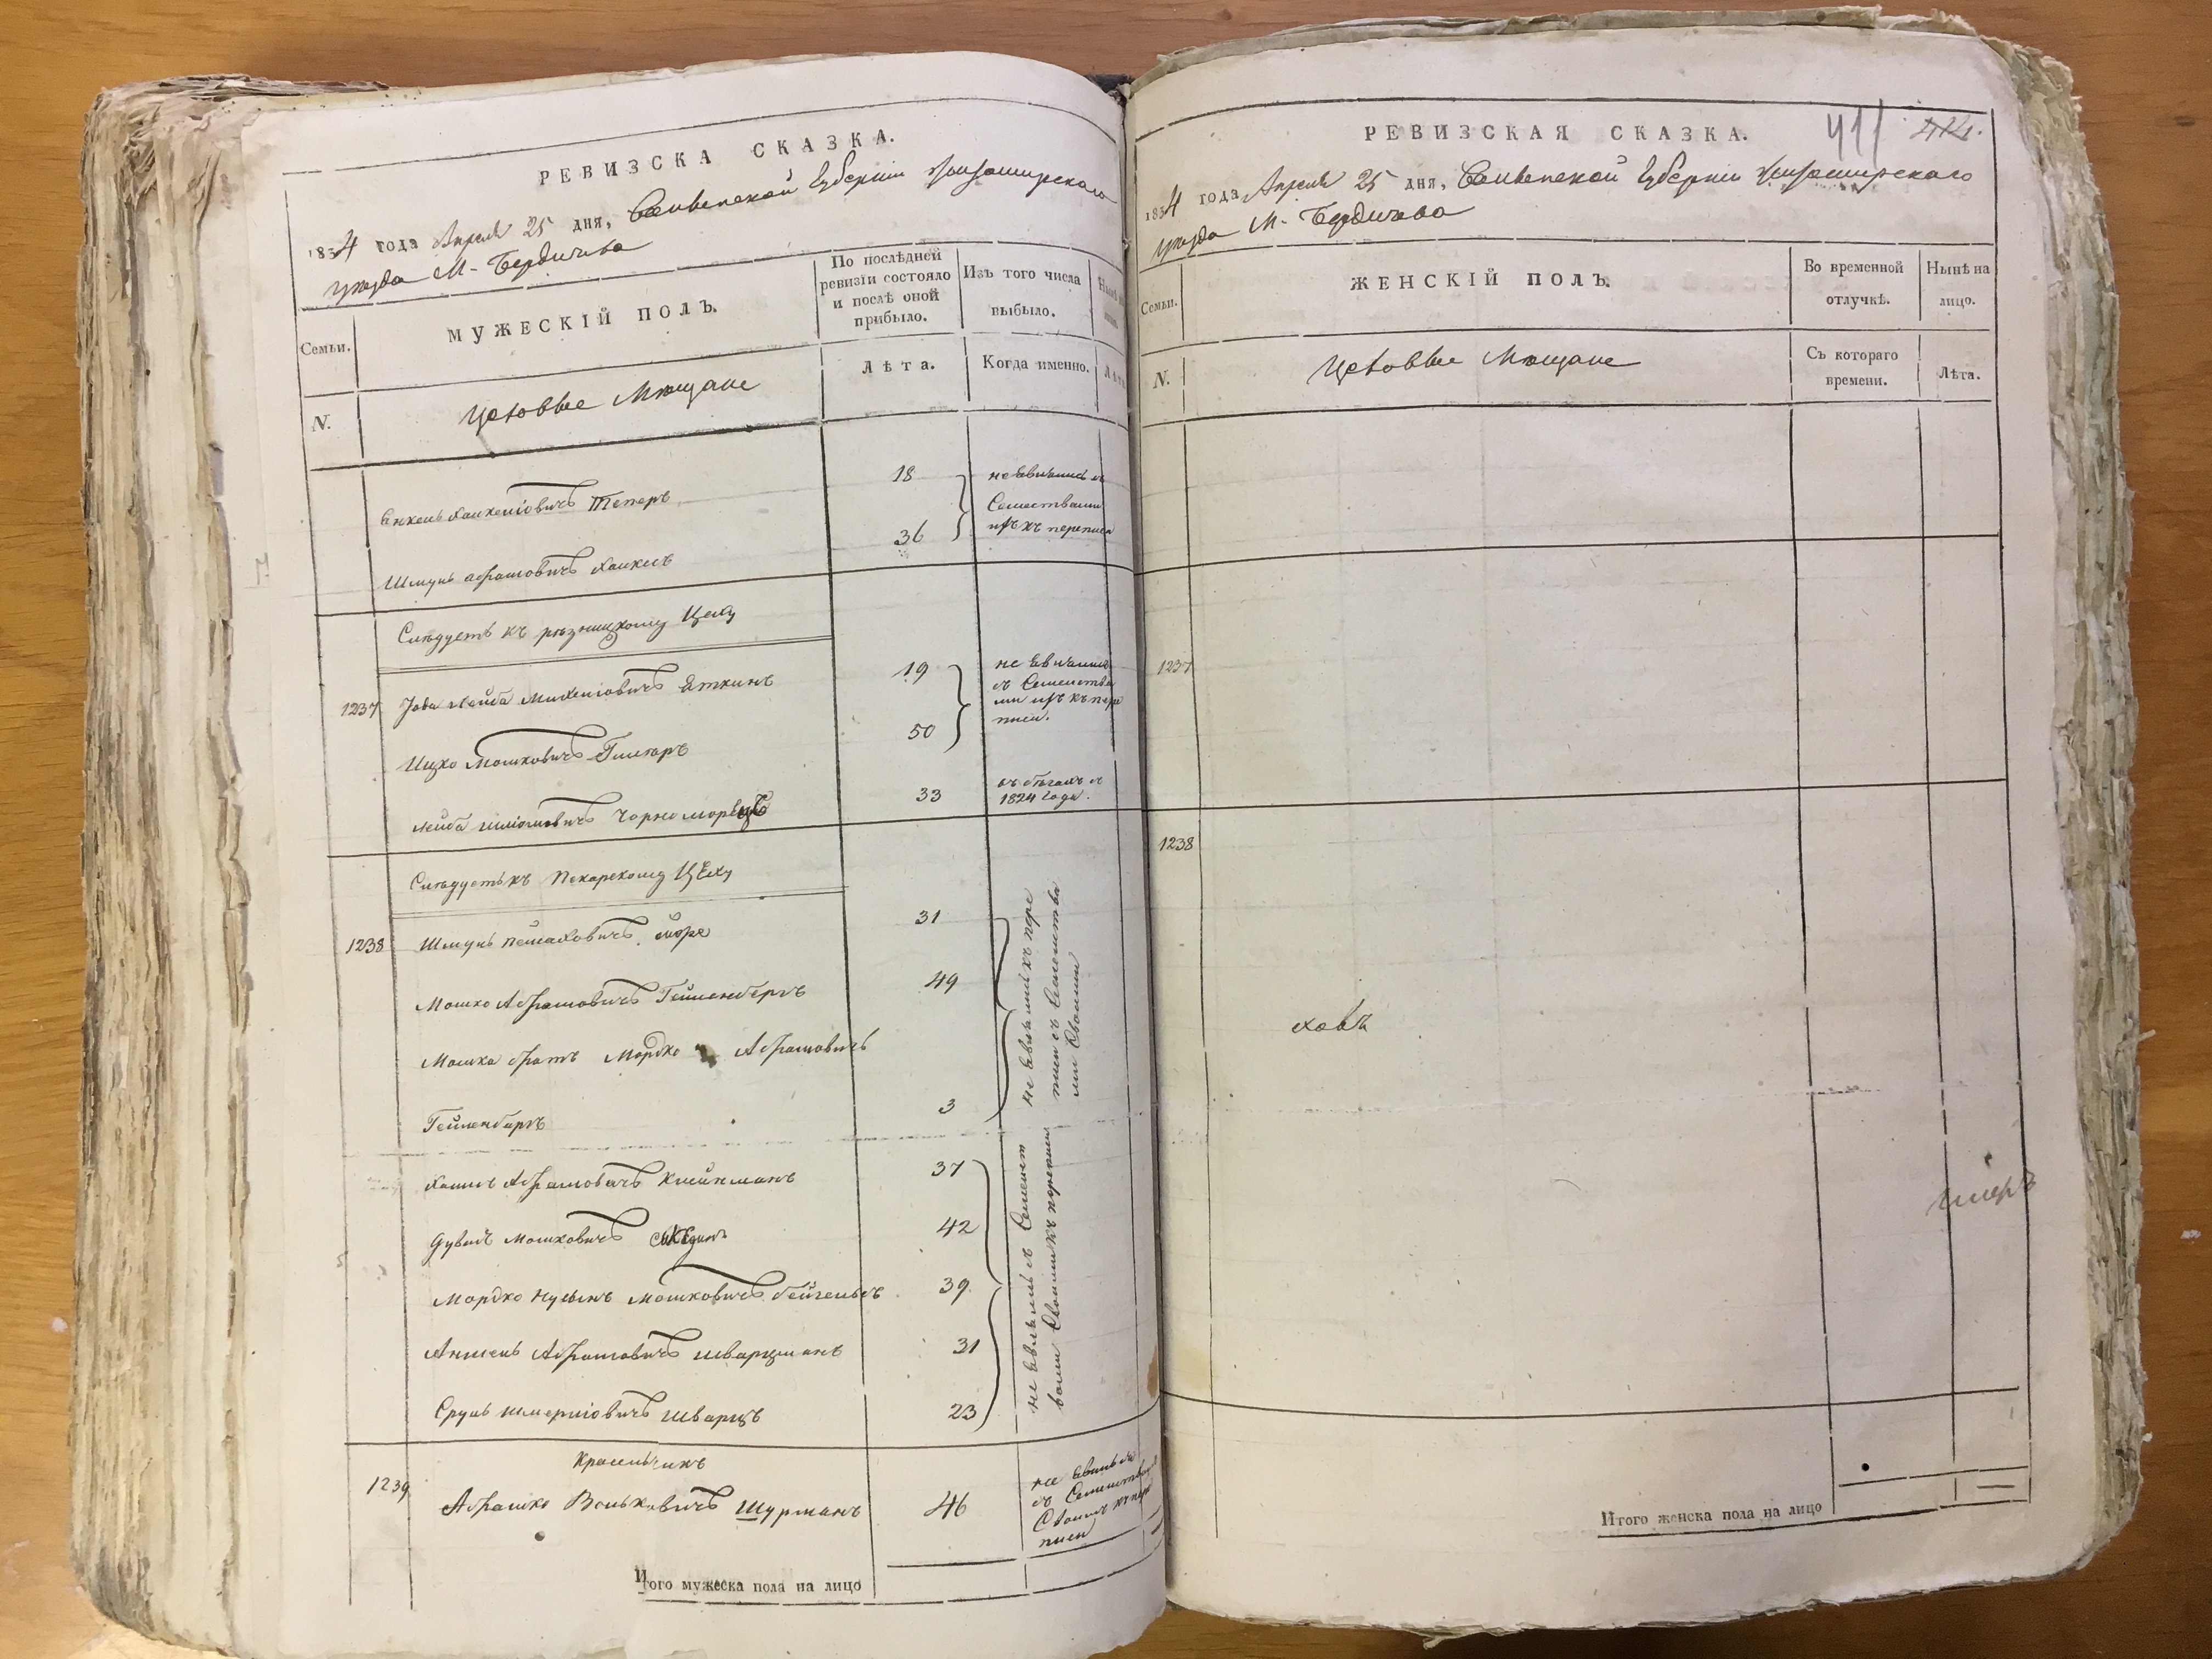 РЕВИЗСКА СКАЗКА.
1834 года Апреля 25 дня, Волынской Губернии Житомирского
уезда М. Бердичева
Семьи.
МУЖЕСКІЙ ПОЛЪ.
По послѣдней ревизіи состояло и послѣ оной прибыло.
Изъ того числа выбыло.
N.
Цеховые Мещане
Лѣта.
Когда именно.
18
не явились съ
Семействами
къ переписи
36
Шмуль Абрамовичъ
Следуетъ къ резницкому Цеху
1237
19
не явились
съ Семейства
ми къ пере
писи.
Ицко Мошковичъ
50
Лейба Чорноморецъ
33
въ бегахъ с
1824 года.
Следуетъ къ Пекарскому Цеху
1238
Шмуль
31
не явились къ пере
писи съ Семейства
ми Своими
Мошко Абрамовичъ Гейленбергъ
49
Мошка братъ Мордко Абрамовичъ
Гейленбергъ
3
Абрамовичъ Клейнманъ
37
не явились съ Семейст
вами Своими къ переписи
Дувидъ Мошковичъ
42
Мордко Нусынъ Мошковичъ
39
Аншель Абрамовичъ Шварцманъ
31
Сруль Шмерковичъ Шварцъ
23
Красильчикъ
1239
Абрамко Вольковичъ Шурманъ
46
не явился
съ Семейством
Своимъ къ пере
писи
Итого мужеска пола на лицо
РЕВИЗСКАЯ СКАЗКА.
411
1834 года Апреля 25 дня, Волынской Губернии Житомирского
уезда М. Бердичева
Семьи.
ЖЕНСКІЙ ПОЛЪ.
Во временной отлучкѣ.
Нынѣ на лицо.
N.
Цеховые Мещане
Съ котораго времени.
Лѣта.
1237
1238
Итого женска пола на лицо